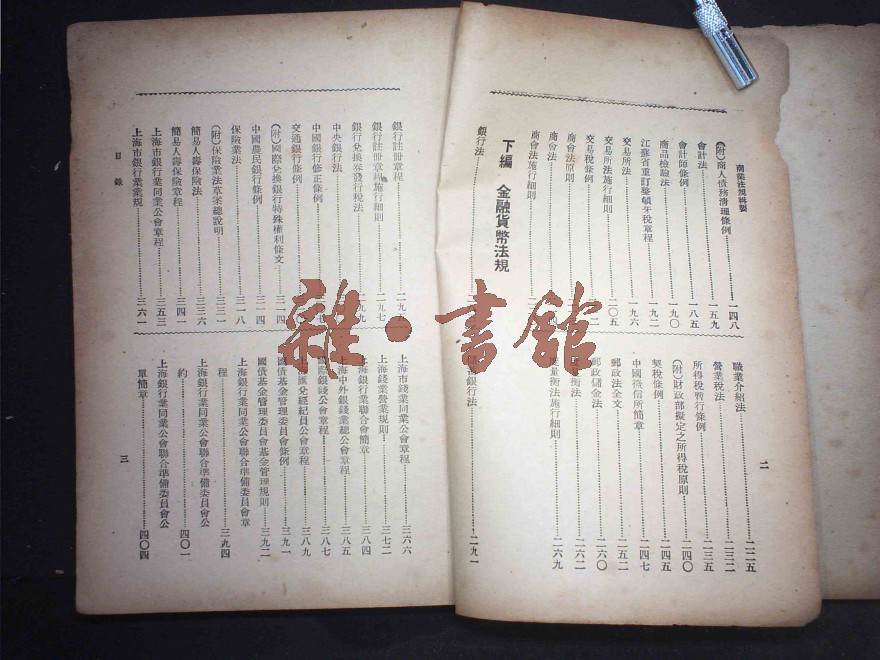 商業法規輯製
(附)商人債務清理條例 一四八
會計法 一五九
會計師條例 一八五
商品檢驗法 一九〇
江蘇省重訂整頓牙稅章程 一九二
交易所法 一九六
交易所法施行細則 二〇五
交易稅條例
商會法原則
商會法
商會法施行細則
下編 金融貨幣法規
銀行法
職業介紹法 二二五
營業稅法 二三二
所得稅暫行條例 二三五
(附)財政部擬定之所得稅原則 二四〇
契稅條例 二四五
中國徵信所簡章 二四七
郵政法全文 二五二
郵政儲金法 二六〇
量衡法 二六二
度量衡法施行細則 二六九
銀行法 二九一
二
銀行註冊章程
銀行註冊章程施行細則 二九七
銀行兌換券發行稅法 二九九
中央銀行法
中國銀行修正條例
交通銀行條例
(附)國際兌換銀行特殊權利條文 三一四
中國農民銀行條例 三一四
保險業法 三一八
(附)保險業法草案總說明 三三一
簡易人壽保險法 三三六
簡易人壽保險章程 三四一
上海市銀行業同業公會章程 三五三
上海市銀行業業規 三六一
目錄
上海市錢業同業公會章程 三六六
上海錢業營業規則 三七二
上海銀行業聯合會簡章 三八四
上海中外銀錢業總公會章程 三八五
國際銀錢公會章程 三八七
上海匯兌經紀員公會章程 三八九
國債基金管理委員會條例 三九一
國債基金管理委員會基金管理規則 三九二
上海銀行業同業公會聯合準備委員會章
程 三九四
上海銀行業同業公會聯合準備委員會公
約 四〇一
上海銀行業同業公會聯合準備委員會公
單簡章 四〇四
三
雜·書館